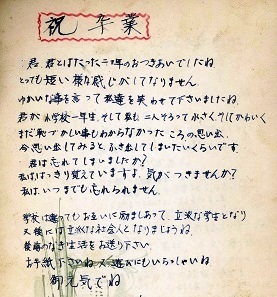 祝 卒業
君 君とはたった二年のおつきあいでしたね
とっても短い様な感じがしてなりません
ゆかいな事を言って私達を笑わせて下さいましたね
君が 小学校一年生、そして私も 二人そって小さく、そしてかわいく
まだ恥づかしい事もわからなかった ころの思い出、
今思い出してみると、ふき出してしまいたいくらいです。
君は忘れてしまいましたか？
私ははっきり覚えていますよ。気がつきませんか？
私は、いつまでも忘れられません
学校は違ってもお互いに励ましあって、立派な学生となり
又後には立派な社会人となりましょうね、
後悔のなき生活をお送り下さい。
お手紙下さいね 又遊びにもいらっしゃいね
御元気でね